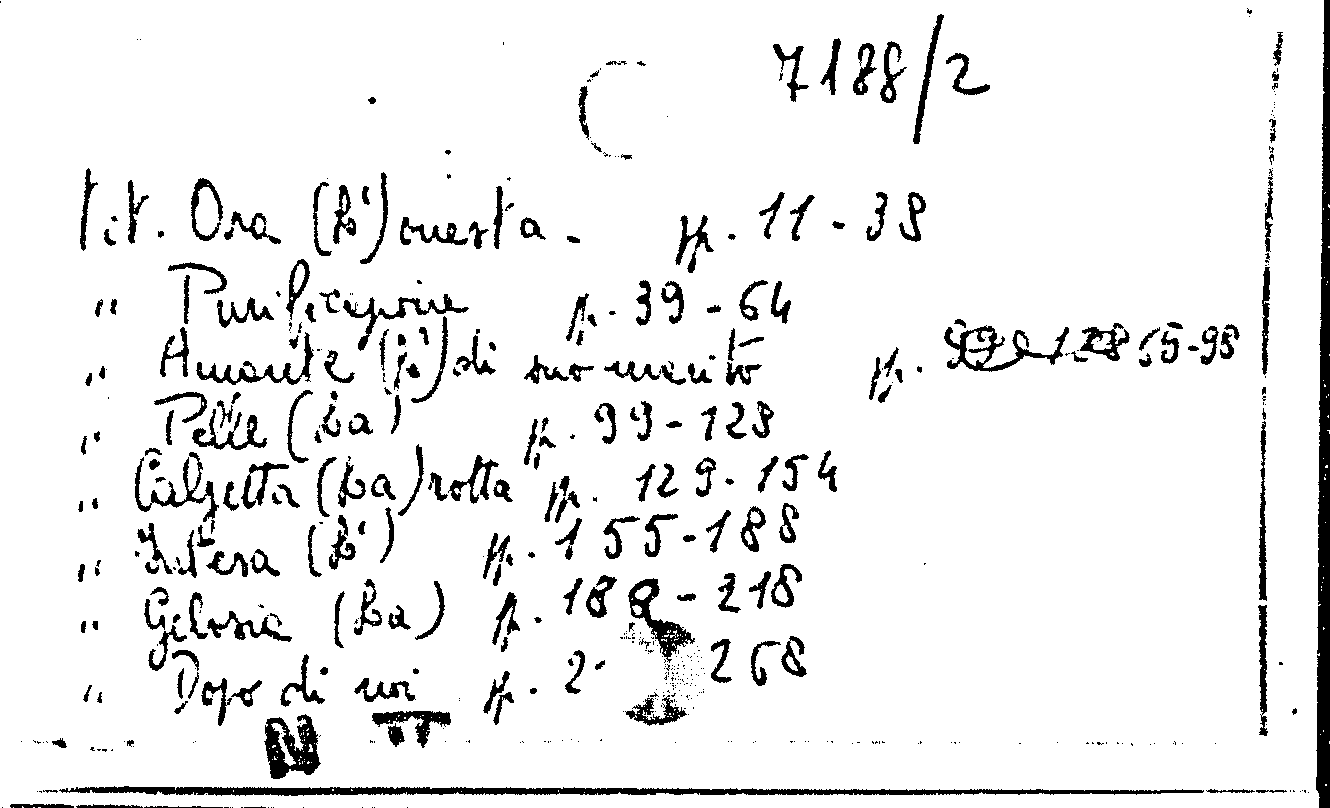 7188/2
tit. Ora (L') onesta - pp. 11 - 38
" Purificazione pp. 39 - 64
" Amante (L') di suo marito pp. 65-98
" Pelle (La) pp. 99 - 128
" Calzetta (La) rotta pp. 129 - 154
" Intesa (L') pp. 155 - 188
" Gelosia (La) pp. 189 - 218
" Dopo di noi pp. 2 268
N